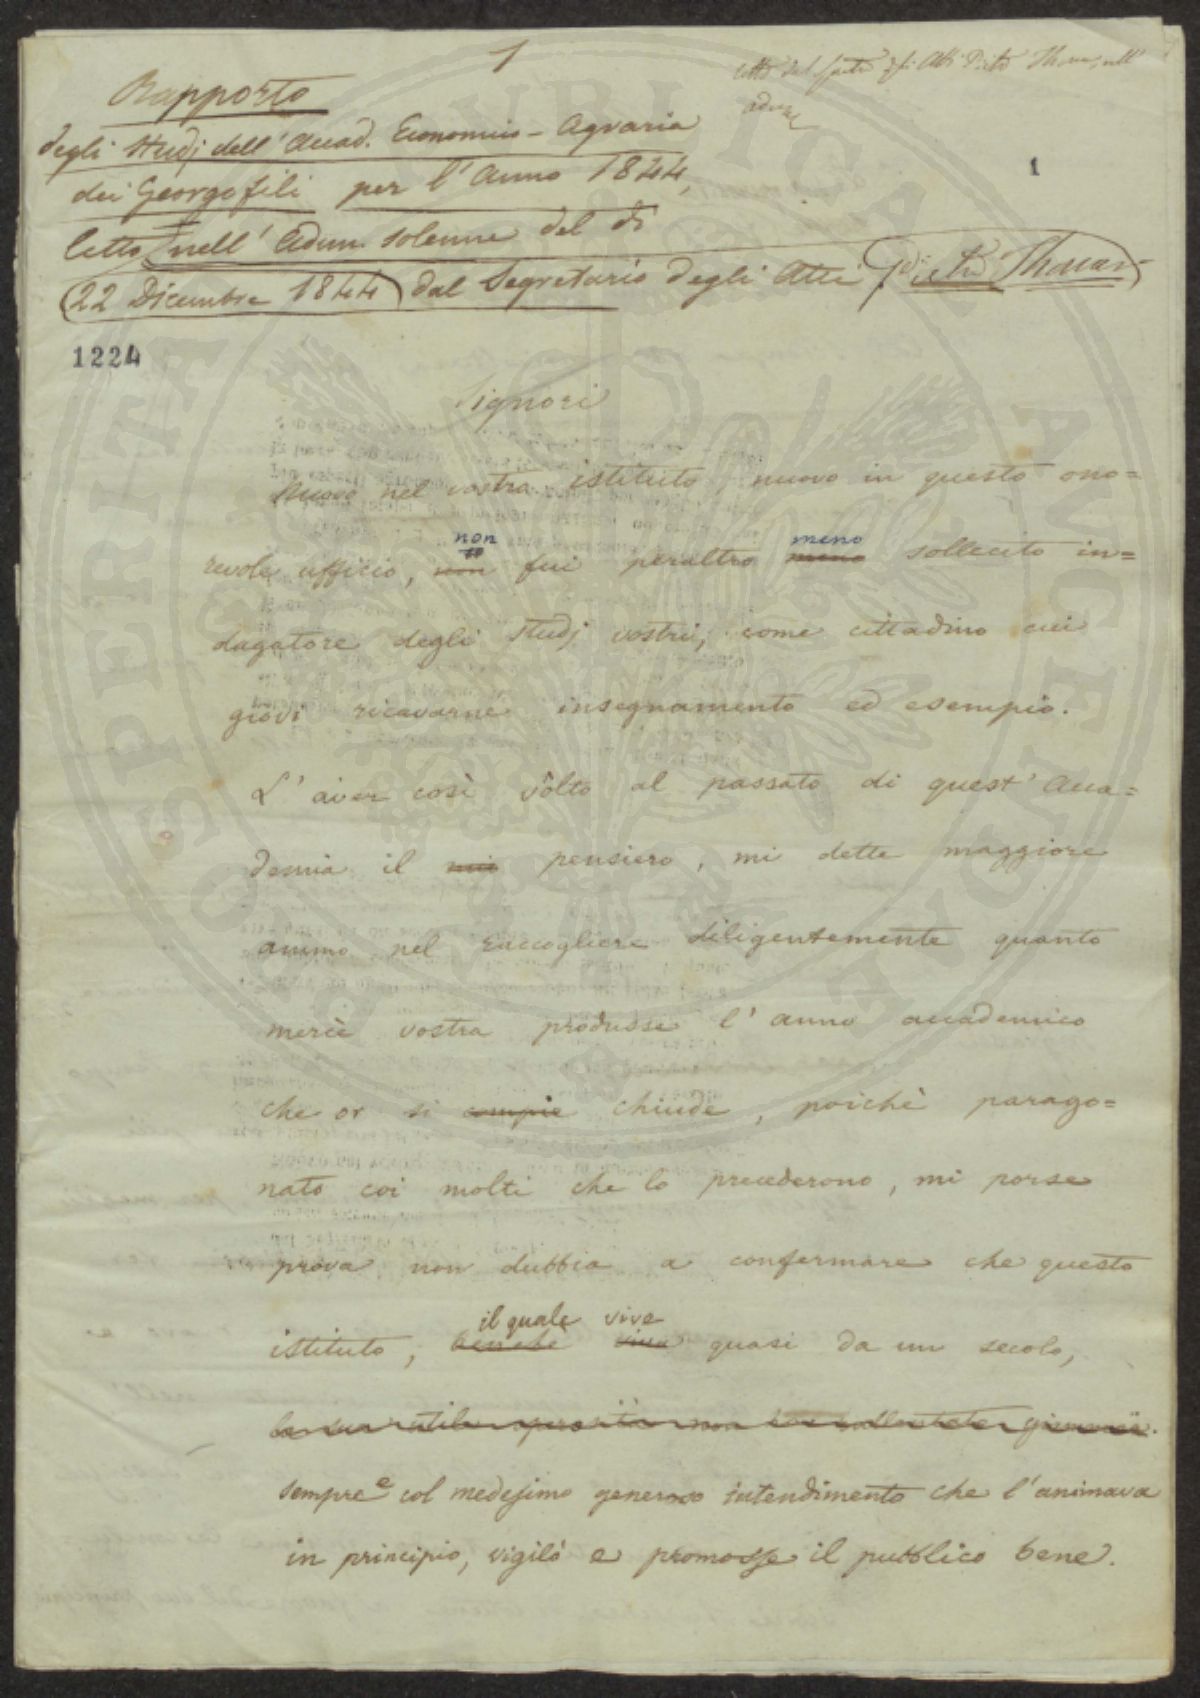 1
letto dal Segretº degli Atti Pietro Thouar nell'
adunz
Rapporto
degli Studj dell'Accad. Economico-Agraria
dei Georgofili per l'Anno 1844,
letto nell'Adun. solenne del dì
22 Dicembre 1844 dal Segretario degli Atti Pietro Thouar
1
1224
Signori
Nuovo nel vostro istituto, nuovo in questo ono=
non meno
revole ufficio, non fui peraltro meno sollecito in=
dagatore degli studj vostri, come cittadino cui
giovi ricavarne insegnamento ed esempio.
L'aver così vòlto al passato di quest'Acca=
demia il mio pensiero, mi dette maggiore
animo nel raccogliere diligentemente quanto
mercè vostra produsse l'anno accademico
che or si compie chiude, poichè parago=
nato coi molti che lo precederono, mi porse
prova non dubbia a confermare che questo
il quale vive
istituto, benchè viva quasi da un secolo,
la sua utile operosità non
sempre e col medesimo generoso intendimento che l'animava
in principio, vigilò e promosse il pubblico bene.
PROSPERITAS PUBLICA AUGENDA